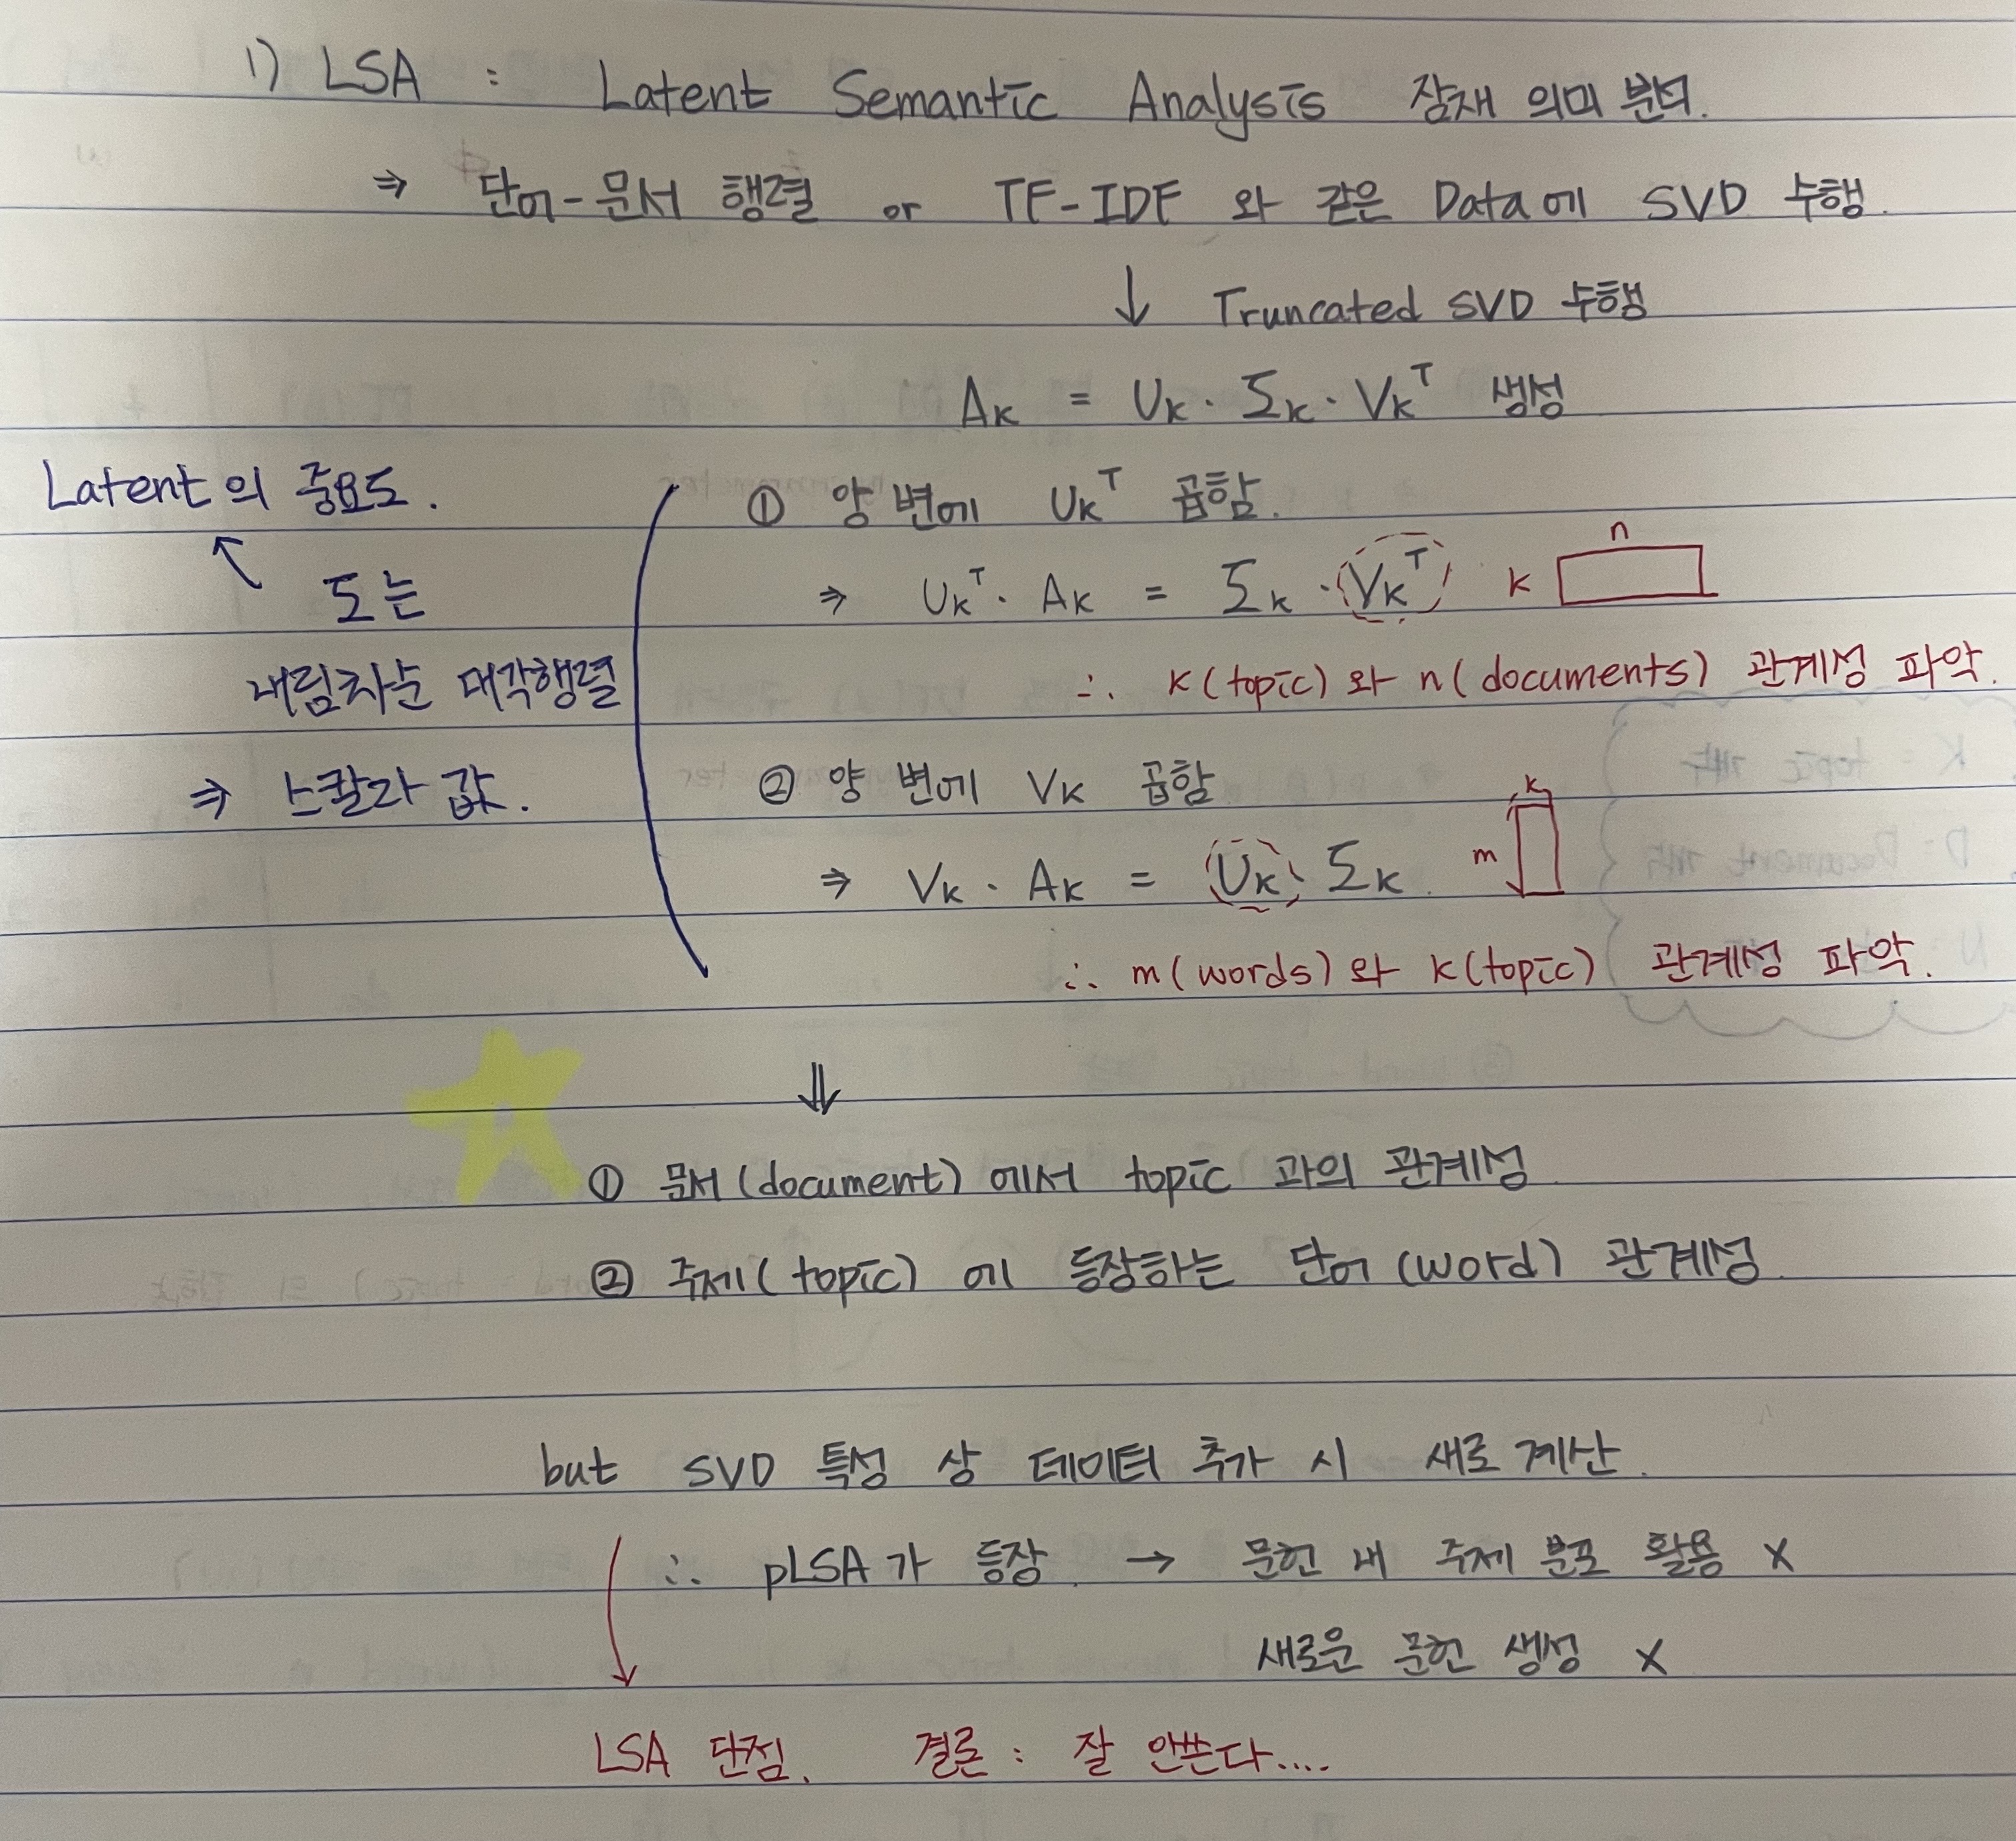 1) LSA : Latent Semantic Analysis 잠재 의미 분석.
⇒ 단어-문서 행렬 or TF-IDF 와 같은 Data에 SVD 수행.
↓ Truncated SVD 수행
Aₖ = Uₖ · Σₖ · Vₖᵀ 생성
① 양 변에 Uₖᵀ 곱함.
⇒ Uₖᵀ · Aₖ = Σₖ · Vₖᵀ k n
∴ k(topic) 와 n(documents) 관계성 파악.
② 양 변에 Vₖ 곱함
⇒ Vₖ · Aₖ = Uₖ Σₖ. m k
∴ m(words) 와 k(topic) 관계성 파악.
Latent의 중요도.
↖ Σ는
내림차순 대각행렬
⇒ 스칼라 값.
⇓
① 문서(document)에서 topic 과의 관계성
② 주제(topic) 에 등장하는 단어(word) 관계성
but SVD 특성 상 데이터 추가 시 새로 계산.
∴ pLSA가 등장. → 문헌 내 주제 분포 활용 X
새로운 문헌 생성 X
LSA 단점. 결론 : 잘 안쓴다....